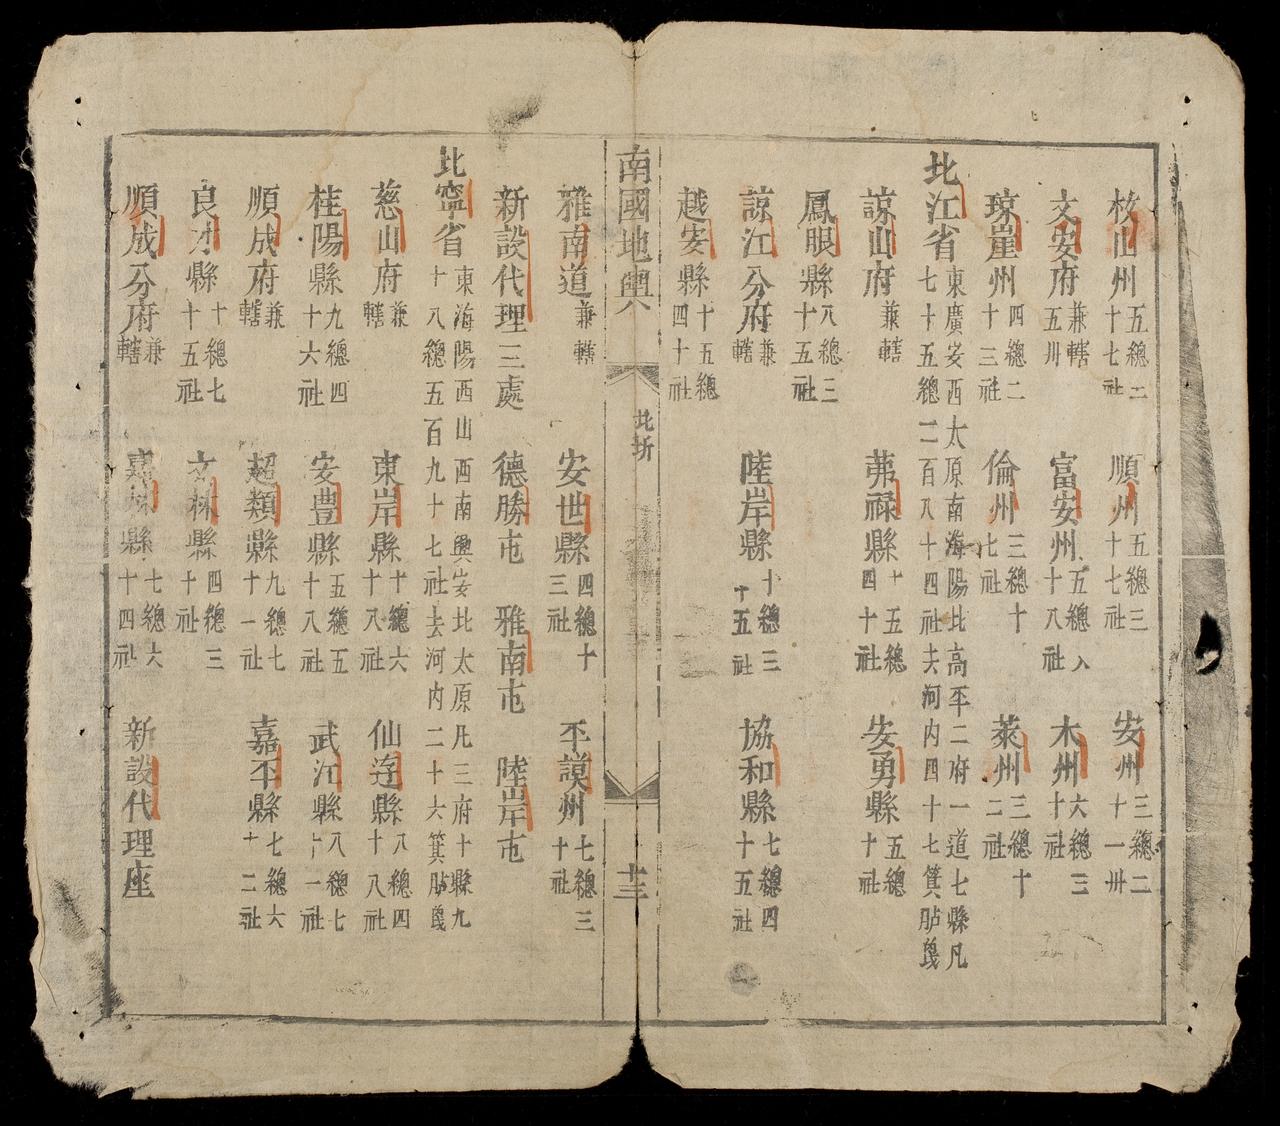 枚山州五總二十七社 順州五總三十七社 安州三總二十一卅
文安府兼轄五卅 富安州五總八十八社 木州六總三十社
琼崖州四總二十三社 倫州三總十七社 萊州三總十二社
北江省東廣安西太原南海陽北高平二府一道七縣凡七十五總二百八十四社去河内四十七箕
諒山府兼轄 茀祿縣十五總四十社 安勇縣五總十社
鳳眼縣八總三十五社
諒江分府兼轄 陸岸縣十總三十五社 協和縣七總四十五社
越安縣十五總四十社
南國地輿 北圻 十三
雅南道兼轄 安世縣四總十三社 平謨州七總三十社
新設代理三處 德勝屯 雅南屯 陸岸屯
北寧省東海陽西山西南興安北太原凡三府十縣九十八總五百九十七社去河内二十六箕
慈山府兼轄 東岸縣十總六十八社 仙逰縣八總四十八社
桂陽縣九總四十六社 安豊縣五總五十八社 武江縣八總七十一社
順成府兼轄 超類縣九總七十一社 嘉平縣七總六十二社
良才縣十總七十五社 文林縣四總三十社
順成分府兼轄 嘉林縣七總六十四社 新設代理座